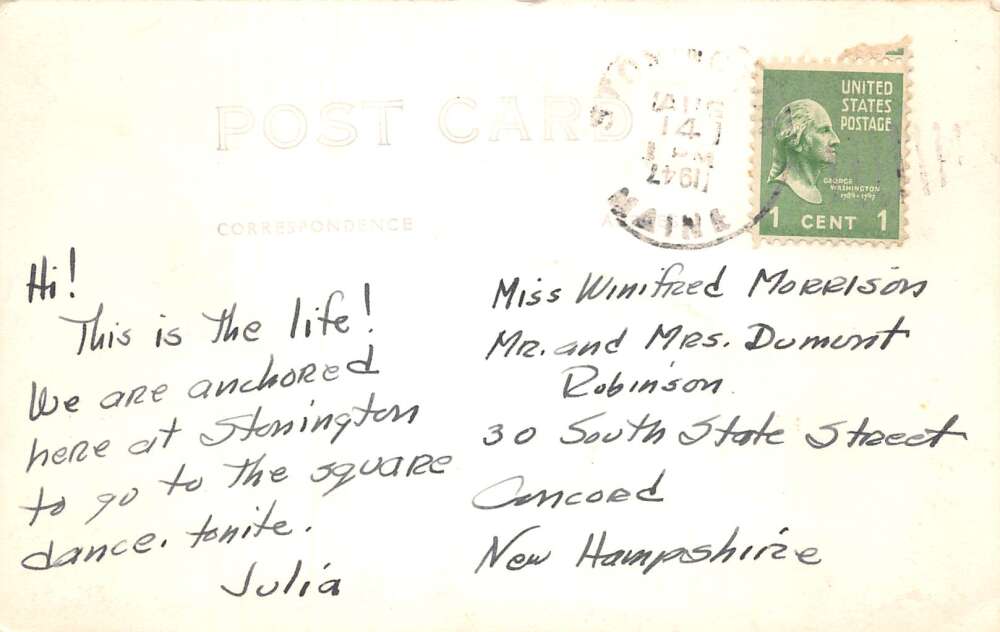 POST CARD
CORRESPONDENCE
AUG
14
1947
MAINE
UNITED
STATES
POSTAGE
GEORGE
WASHINGTON
1 CENT 1
Hi!
This is the life!
We are anchored
here at Stonington
to go to the square
dance. tonite.
Julia
Miss Winifred Morrison
Mr. and Mrs. Dumont
Robinson
30 South State Street
Concord
New Hampshire